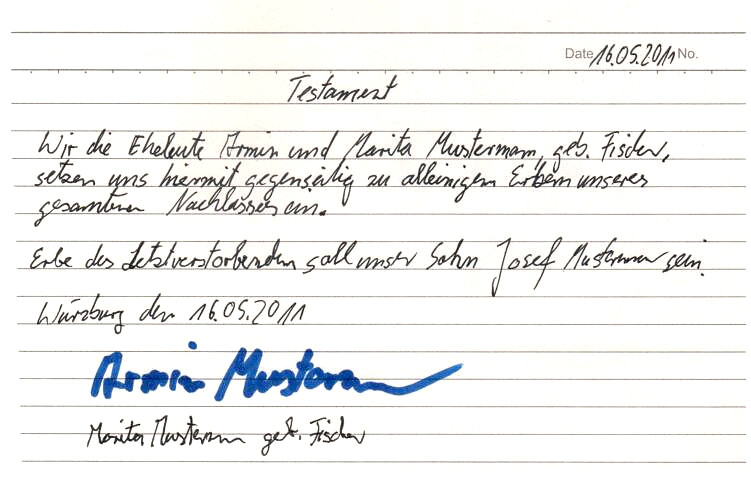 Date 16.05.2011 No.
Testament
Wir die Eheleute Armin und Marita Mustermann, geb. Fischer,
setzen uns hiermit gegenseitig zu alleinigen Erben unseres
gesamten Nachlasses ein.
Erbe des Letztverstorbenden soll unser Sohn Josef Mustermann sein.
Würzburg den 16.05.2011
Armin Mustermann
Marita Mustermann geb. Fischer